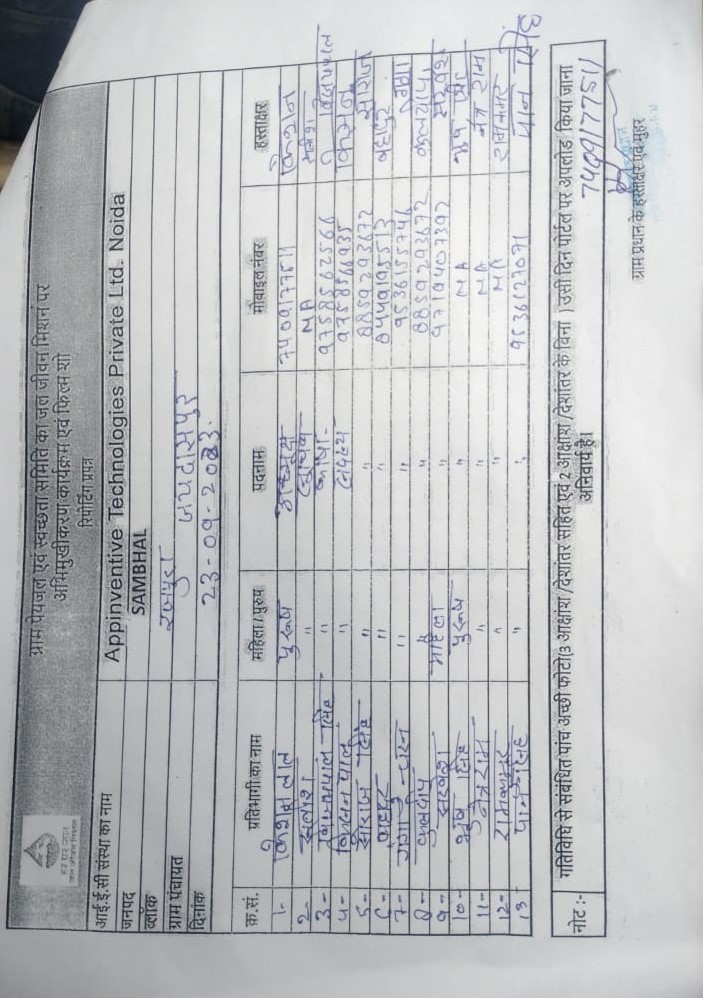 हर घर जल
जल जीवन मिशन
ग्राम पेयजल एवं स्वच्छता समिति का जल जीवन मिशन पर
अभिमुखीकरण कार्यक्रम एवं फिल्म शो
रिपोर्टिंग प्रपत्र
आई.ई.सी संस्था का नाम Appinventive Technologies Private Ltd. Noida
जनपद SAMBHAL
ब्लॉक रजपुरा
ग्राम पंचायत जयदासपुर
दिनांक 23-09-2023.
क्र.सं. प्रतिभागी का नाम महिला / पुरुष पदनाम मोबाइल नंबर हस्ताक्षर
1- किशन लाल पुरूष अध्यक्ष 7409177511 किशन
2- " NA
3- सिंह " 9758562566
4- पाल " सदस्य 9758566935 किसन
5- सिंह " " 8859293672
6- बहादुर " " 8449195513 बहादुर
7- गंगा चरन " " 9536155746 गंगा
8- कुलदीप " " 8859293672
9- महिला " 9719407392
10- सिंह पुरूष " NA
11- नेत्रराम " " NA नेत्र राम
12- " " NA
13- सिंह " " 9536127071 सिंह
नोट :- गतिविधि से संबंधित पांच अच्छी फोटो(3 आक्षांश /देशांतर सहित एवं 2 आक्षांश /देशांतर के बिना ) उसी दिन पोर्टल पर अपलोड किया जाना
अनिवार्य है।
7409177511
ग्राम प्रधान के हस्ताक्षर एवं मुहर